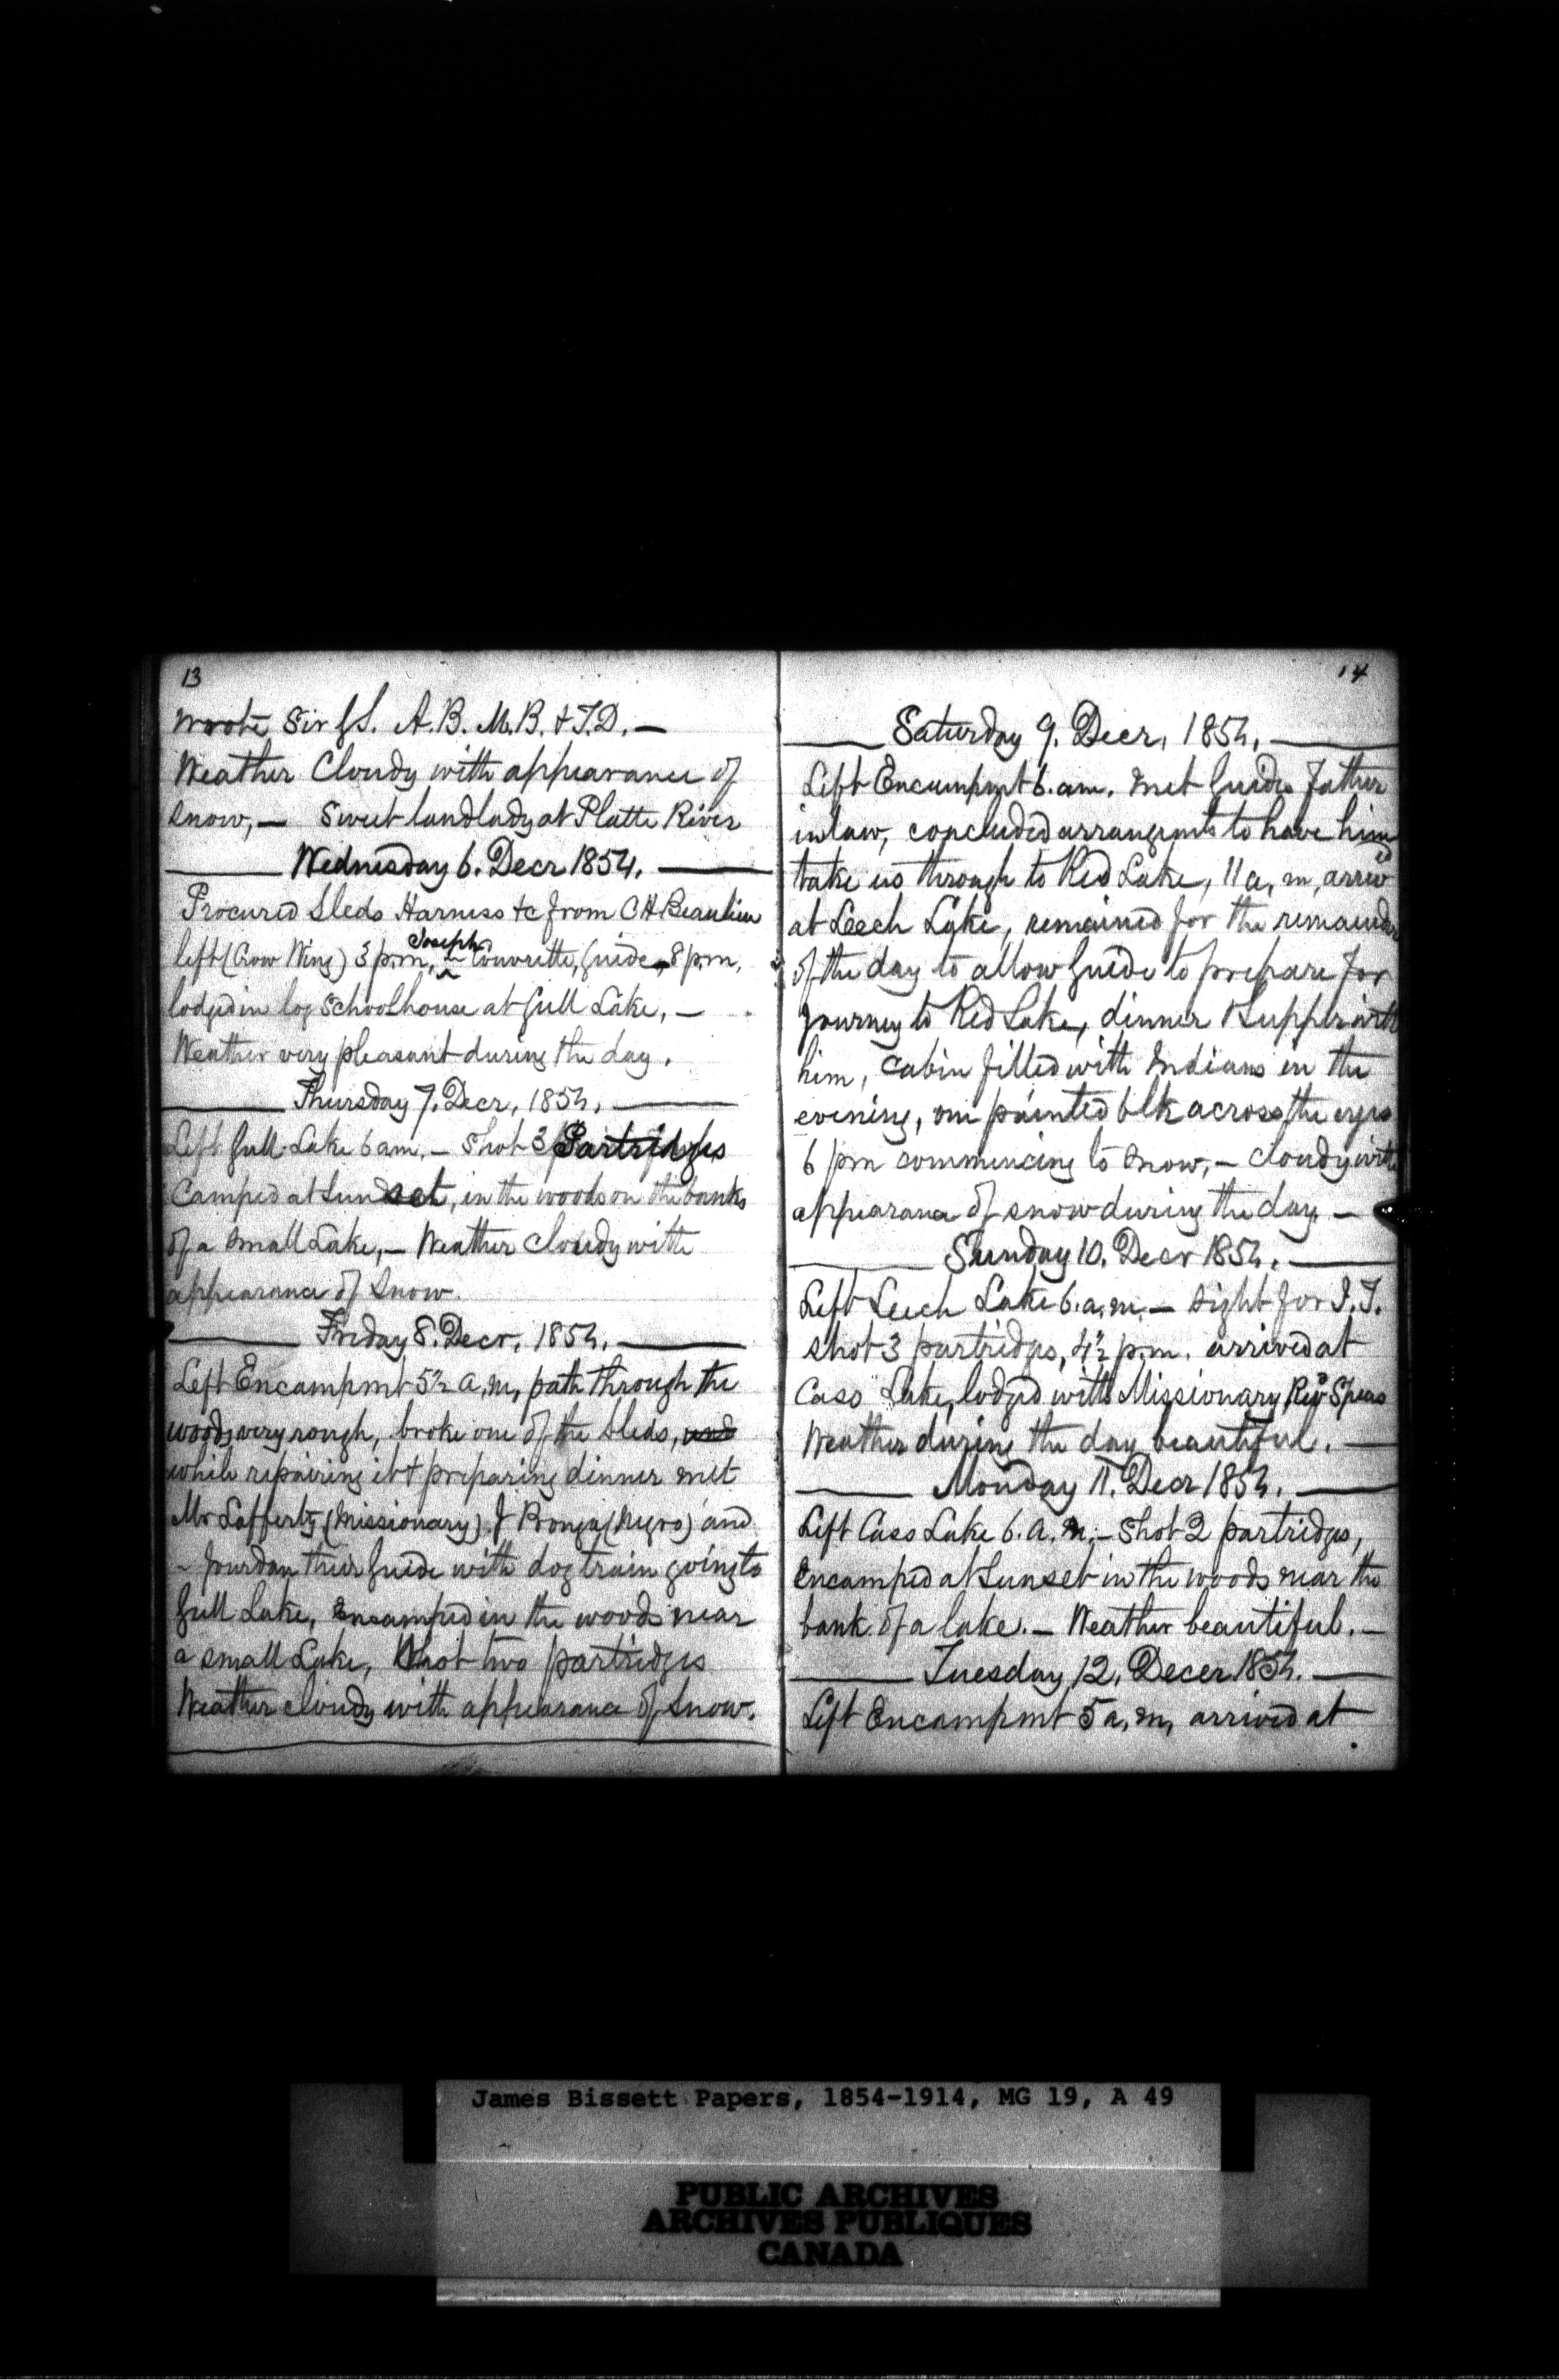 13
Wrote Sir G S. A.B. M.B. & T.D. —
Weather Cloudy with appearance of
snow, — Sweet landlady at Platte River
Wednesday 6. Decr 1854.
Procured Sleds Harness &c from C H Beaulieu
left (Crow Wing) 3 p.m, Joseph Couvrette, Guide, 8 p.m,
lodged in log Schoolhouse at Gull Lake, —
Weather very pleasant during the day.
Thursday 7. Decr, 1854.
Left Gull Lake 6 am. — Shot 3 Partridges
Camped at Sunset, in the woods on the banks
of a small Lake, — Weather Cloudy with
appearance of Snow.
Friday 8. Decr, 1854.
Left Encampmt 5½ a.m, path through the
woods very rough, broke one of the sleds, and
while repairing it & preparing dinner met
Mr Lafferty (Missionary) J Bonga (Negro) and
~ Jourdan their Guide with dog train going to
Gull Lake, encamped in the woods near
a small Lake, Shot two partridges
Weather cloudy with appearance of Snow.
14
Saturday 9. Decr, 1854.
Left Encampmt 6. am. met Guides father
in law, concluded arrangmts to have him
take us through to Red Lake, 11 a, m, arriv'd
at Leech Lake, remained for the remainder
of the day to allow Guide to prepare for
journey to Red Lake, dinner & supper with
him, Cabin filled with Indians in the
evening, one painted blk across the eyes
6 pm commencing to snow, — Cloudy with
appearance of snow during the day —
Sunday 10. Decr 1854.
Left Leech Lake 6. a.m. — sight for I.T.
shot 3 partridges, 4½ p.m. arrived at
Cass Lake, lodged with Missionary Revd Spears
Weather during the day beautiful. —
Monday 11. Decr 1854.
Left Cass Lake 6. a.m. — Shot 2 partridges,
encamped at Sunset in the woods near the
bank of a lake. — Weather beautiful. —
Tuesday 12. Decer 1854.
Left Encampmt 5 a, m, arrived at
James Bissett Papers, 1854-1914, MG 19, A 49
PUBLIC ARCHIVES
ARCHIVES PUBLIQUES
CANADA